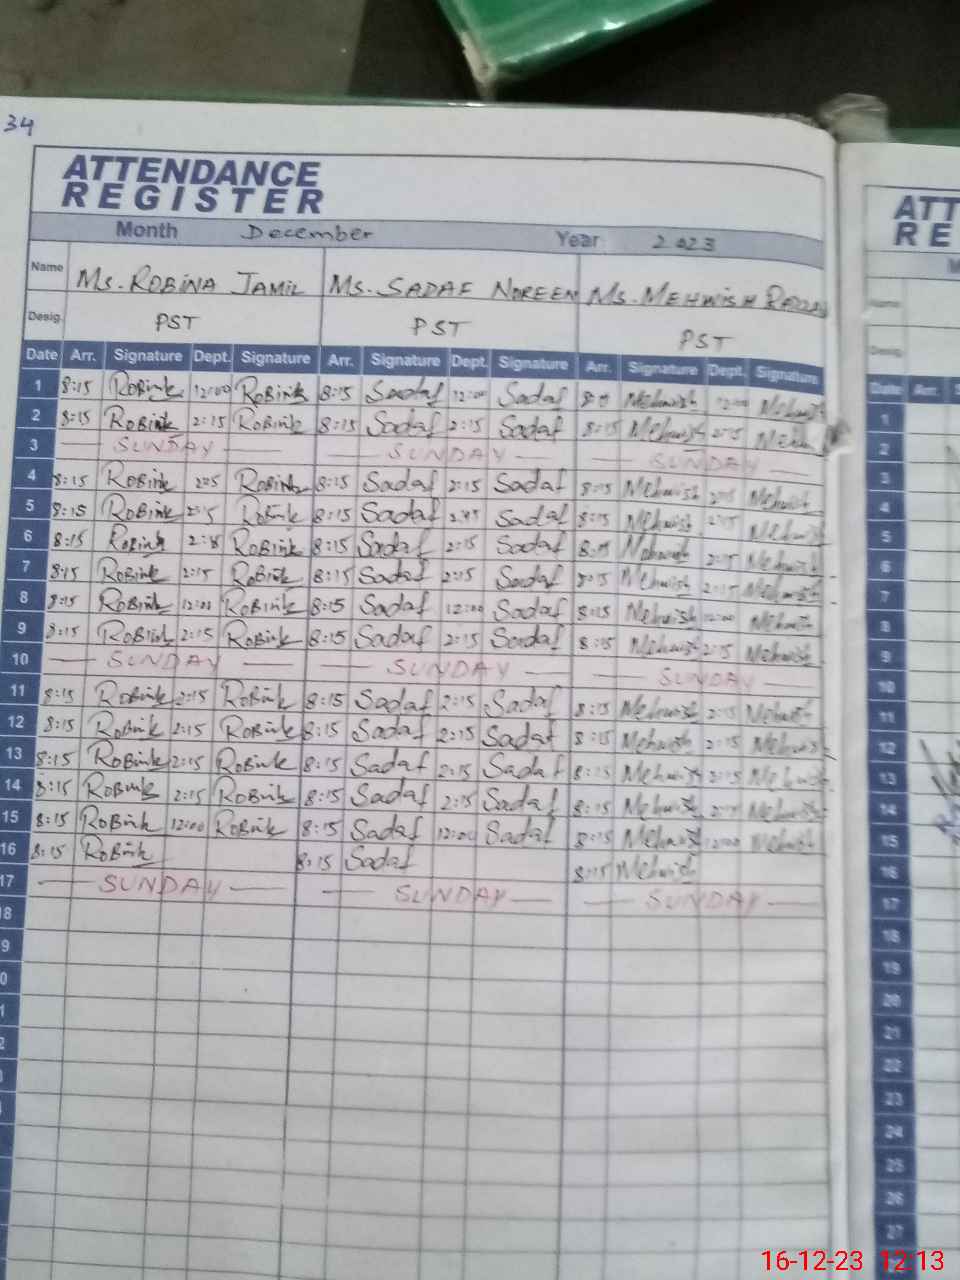 34
ATTENDANCE
REGISTER
Month December Year 2023
Name Ms. ROBINA JAMIL Ms. SADAF NOREEN Ms. MEHWISH
Desig. PST PST PST
Date Arr. Signature Dept. Signature Arr. Signature Dept. Signature Arr. Signature Dept. Signature
1 8:15 RoBink 12:00 RoBink 8:15 Sadaf 12:00 Sadaf Mehwish 12:00 Mehwish
2 8:15 RoBink 2:15 RoBink 8:15 Sadaf 2:15 Sadaf 8:15 Mehwish 2:15
3 SUNDAY SUNDAY SUNDAY
4 8:15 RoBink RoBink 8:15 Sadaf 2:15 Sadaf 8:15 Mehwish 2:15 Mehwish
5 8:15 RoBink 2:15 RoBink 8:15 Sadaf Sadaf 8:15 Mehwish 2:15 Mehwish
6 8:15 RoBink RoBink 8:15 Sadaf 2:15 Sadaf 8:15 Mehwish 2:15 Mehwish
7 8:15 RoBink 2:15 RoBink 8:15 Sadaf 2:15 Sadaf 8:15 Mehwish 2:15 Mehwish
8 8:15 RoBink 12:00 RoBink 8:15 Sadaf 12:00 Sadaf 8:15 Mehwish 12:00 Mehwish
9 8:15 RoBink 2:15 RoBink 8:15 Sadaf 2:15 Sadaf 8:15 Mehwish 2:15 Mehwish
10 SUNDAY SUNDAY SUNDAY
11 8:15 RoBink 2:15 RoBink 8:15 Sadaf 2:15 Sadaf 8:15 Mehwish 2:15 Mehwish
12 8:15 RoBink 2:15 RoBink 8:15 Sadaf 2:15 Sadaf 8:15 Mehwish 2:15 Mehwish
13 8:15 RoBink 2:15 RoBink 8:15 Sadaf 2:15 Sadaf 8:15 Mehwish 2:15 Mehwish
14 8:15 RoBink 2:15 RoBink 8:15 Sadaf 2:15 Sadaf 8:15 Mehwish Mehwish
15 8:15 RoBink 12:00 RoBink 8:15 Sadaf 12:00 Sadaf 8:15 Mehwish 12:00 Mehwish
16 8:15 RoBink 8:15 Sadaf 8:15 Mehwish
17 SUNDAY SUNDAY SUNDAY
8
9
0
1
2
ATT
RE
Name
Desig.
Date Arr.
1
2
3
4
5
6
7
8
9
10
11
12
13
14
15
16
17
18
19
20
21
22
23
24
25
26
27
16-12-23 12:13